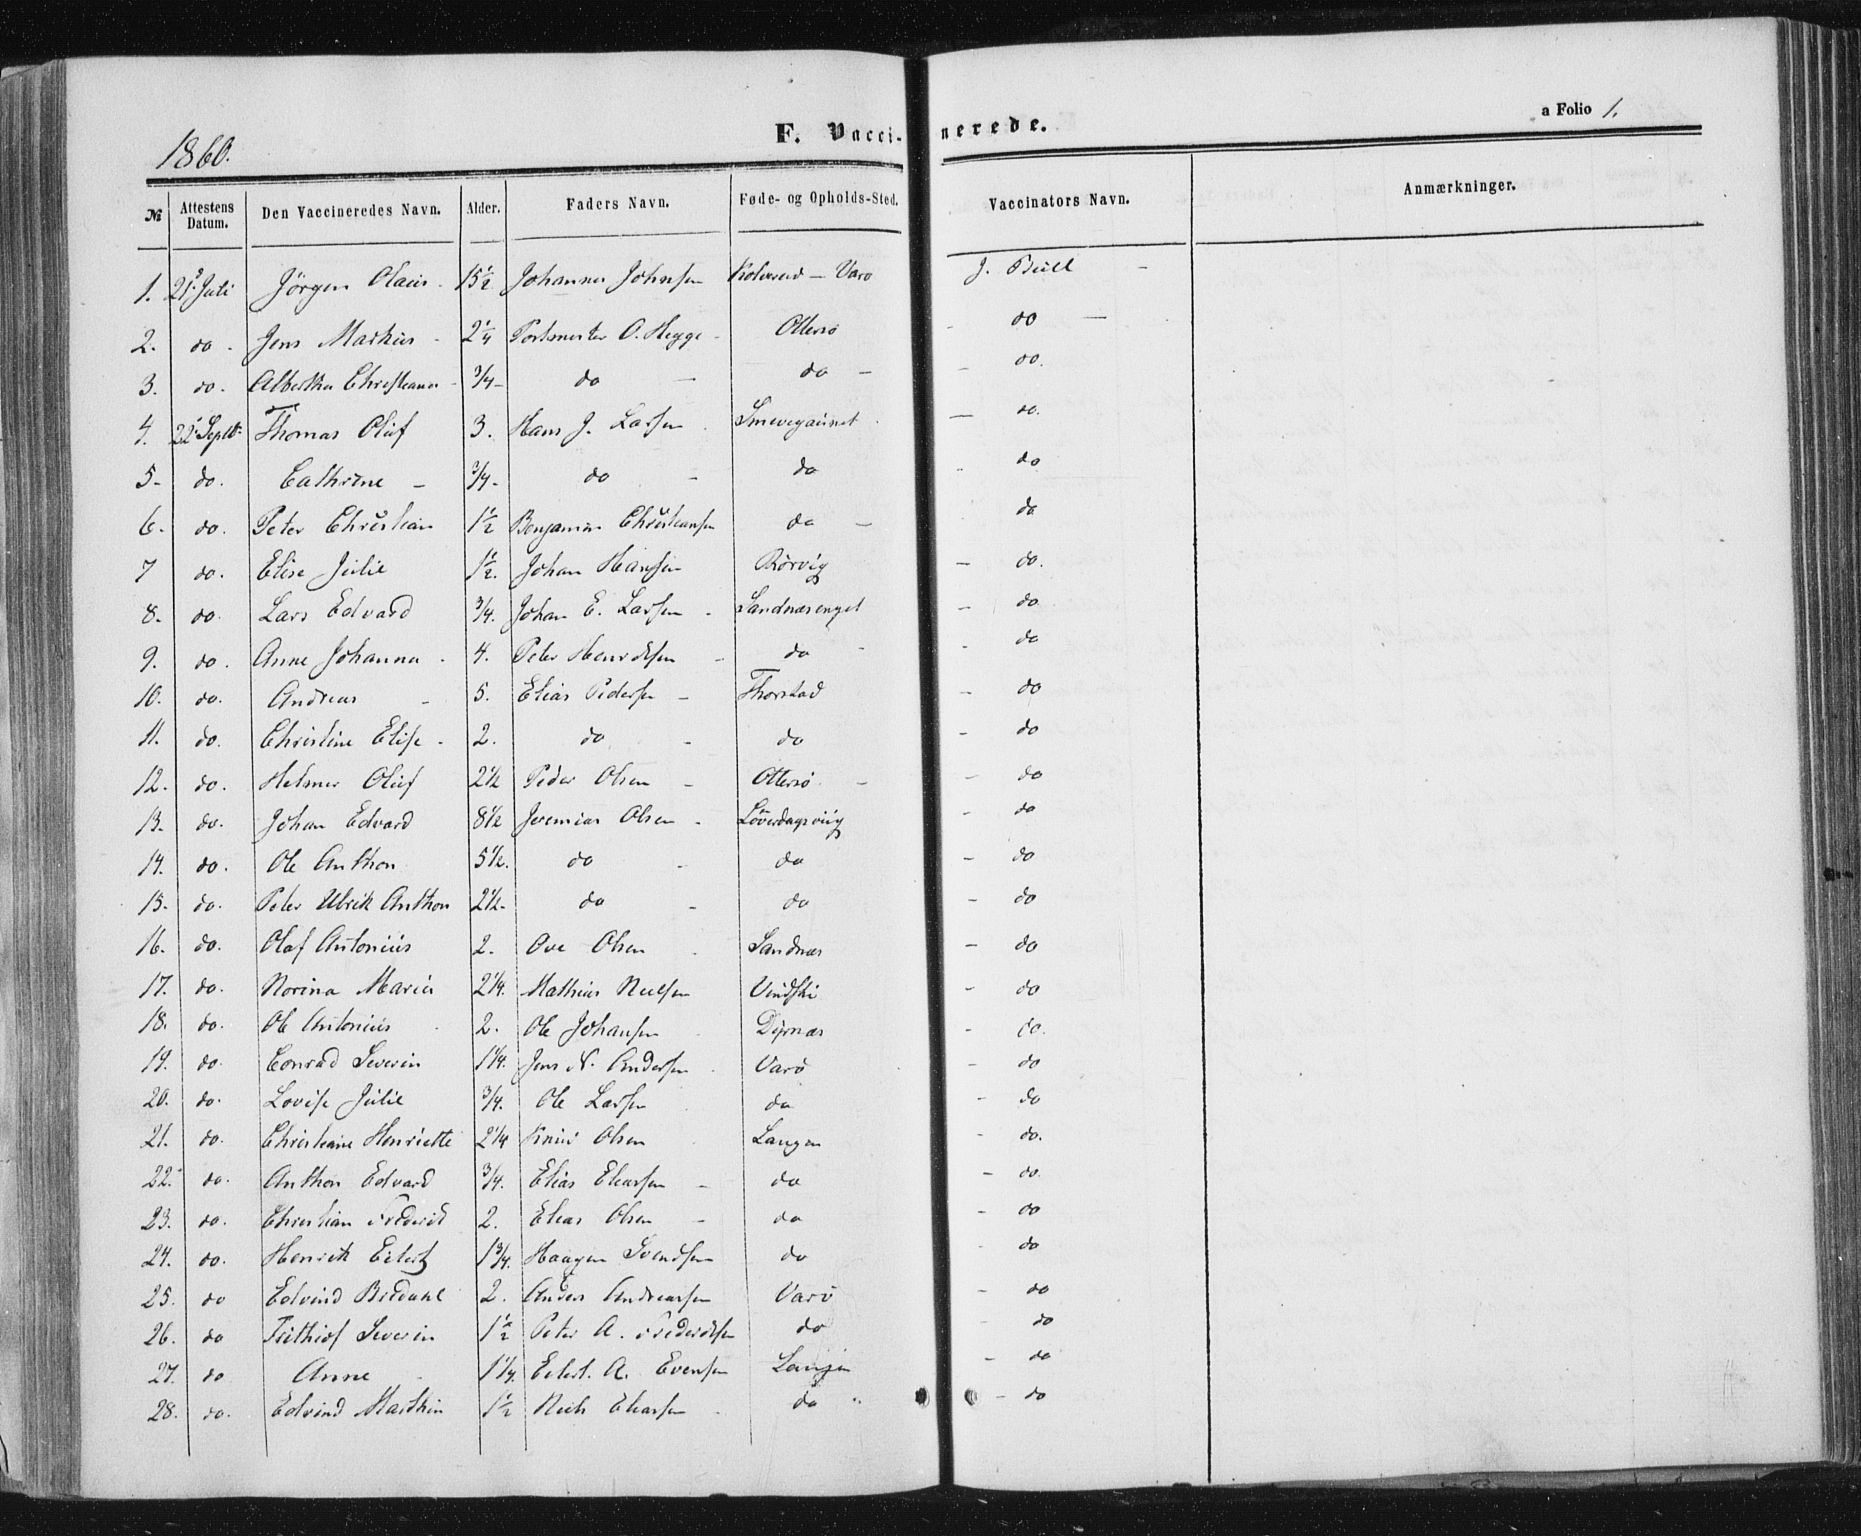 1860.
F. Vaccinerede.
a Folio 1.
№ Attestens Datum. Den Vaccineredes Navn. Alder. Faders Navn. Føde- og Opholds-Sted. Vaccinators Navn. Anmærkninger.
1. 21 Juli Jörgen Olaus 15 1/2 Johannes Johnsen Kolvereid - Varø J. Bull
2. do. Jens Markus 2 1/4 O. Hegge Ottersø do
3. do. Christiane 3/4 do do do.
4. 22 Septbr. Thomas Oluf 3. Hans J. Larsen do.
5. do. Cathrine 3/4. do do do
6. do. Peter Christian 1 1/2 Benjamin Christiansen do do
7 do. Elise Julie 1 1/2. Johan Hansen Rörvig do.
8. do. Lars Edvard 3/4. Johan E. Larsen Sandnæsenget do
9. do. Anne Johanna 4. Peter Henriksen do do
10. do. Andreas 5. Elias Pedersen Thorstad do
11. do. Christine Elise 2. do do do
12. do. Helmer Oluf 2 1/2 Peder Olsen Ottersø do
13. do. Johan Edvard 8 1/2 Jeremias Olsen Löverdagsviig do
14. do. Ole Anthon 5 1/2. do do do
15. do. Peter Ulrik Anthon 2 1/2. do do do
16. do. Olaf Antonius 2. Ove Olsen Sandnæs do
17. do. Norina Maria 2 1/4. Mathias Neelsen do
18. do. Ole Antonius 2. Ole Johansen Dyrnæs do.
19. do. Conrad Severin 1 1/4. Jens N. Andersen Varø do
20. do. Lovise Julie 3/4. Ole Larsen do do
21. do. Christiane Henriette 2 1/4 Knud Olsen Langen do.
22. do. Anthon Edvard 3/4. Elias Eliassen do do.
23. do. Christian Frederik 2. Elias Olsen do do
24. do. Henrik Eilert 1 3/4. Haagen Svendsen do do
25. do Edvind Bredahl 2. Anders Andreassen Varø do
26. do Frithiof Severin 1 1/2 Peter A. Frederiksen do do
27. do Anne 1 1/4. Eilert A. Evensen Langen do
28. do. Edvind Marthin 1 1/2 Niels Eliassen do do